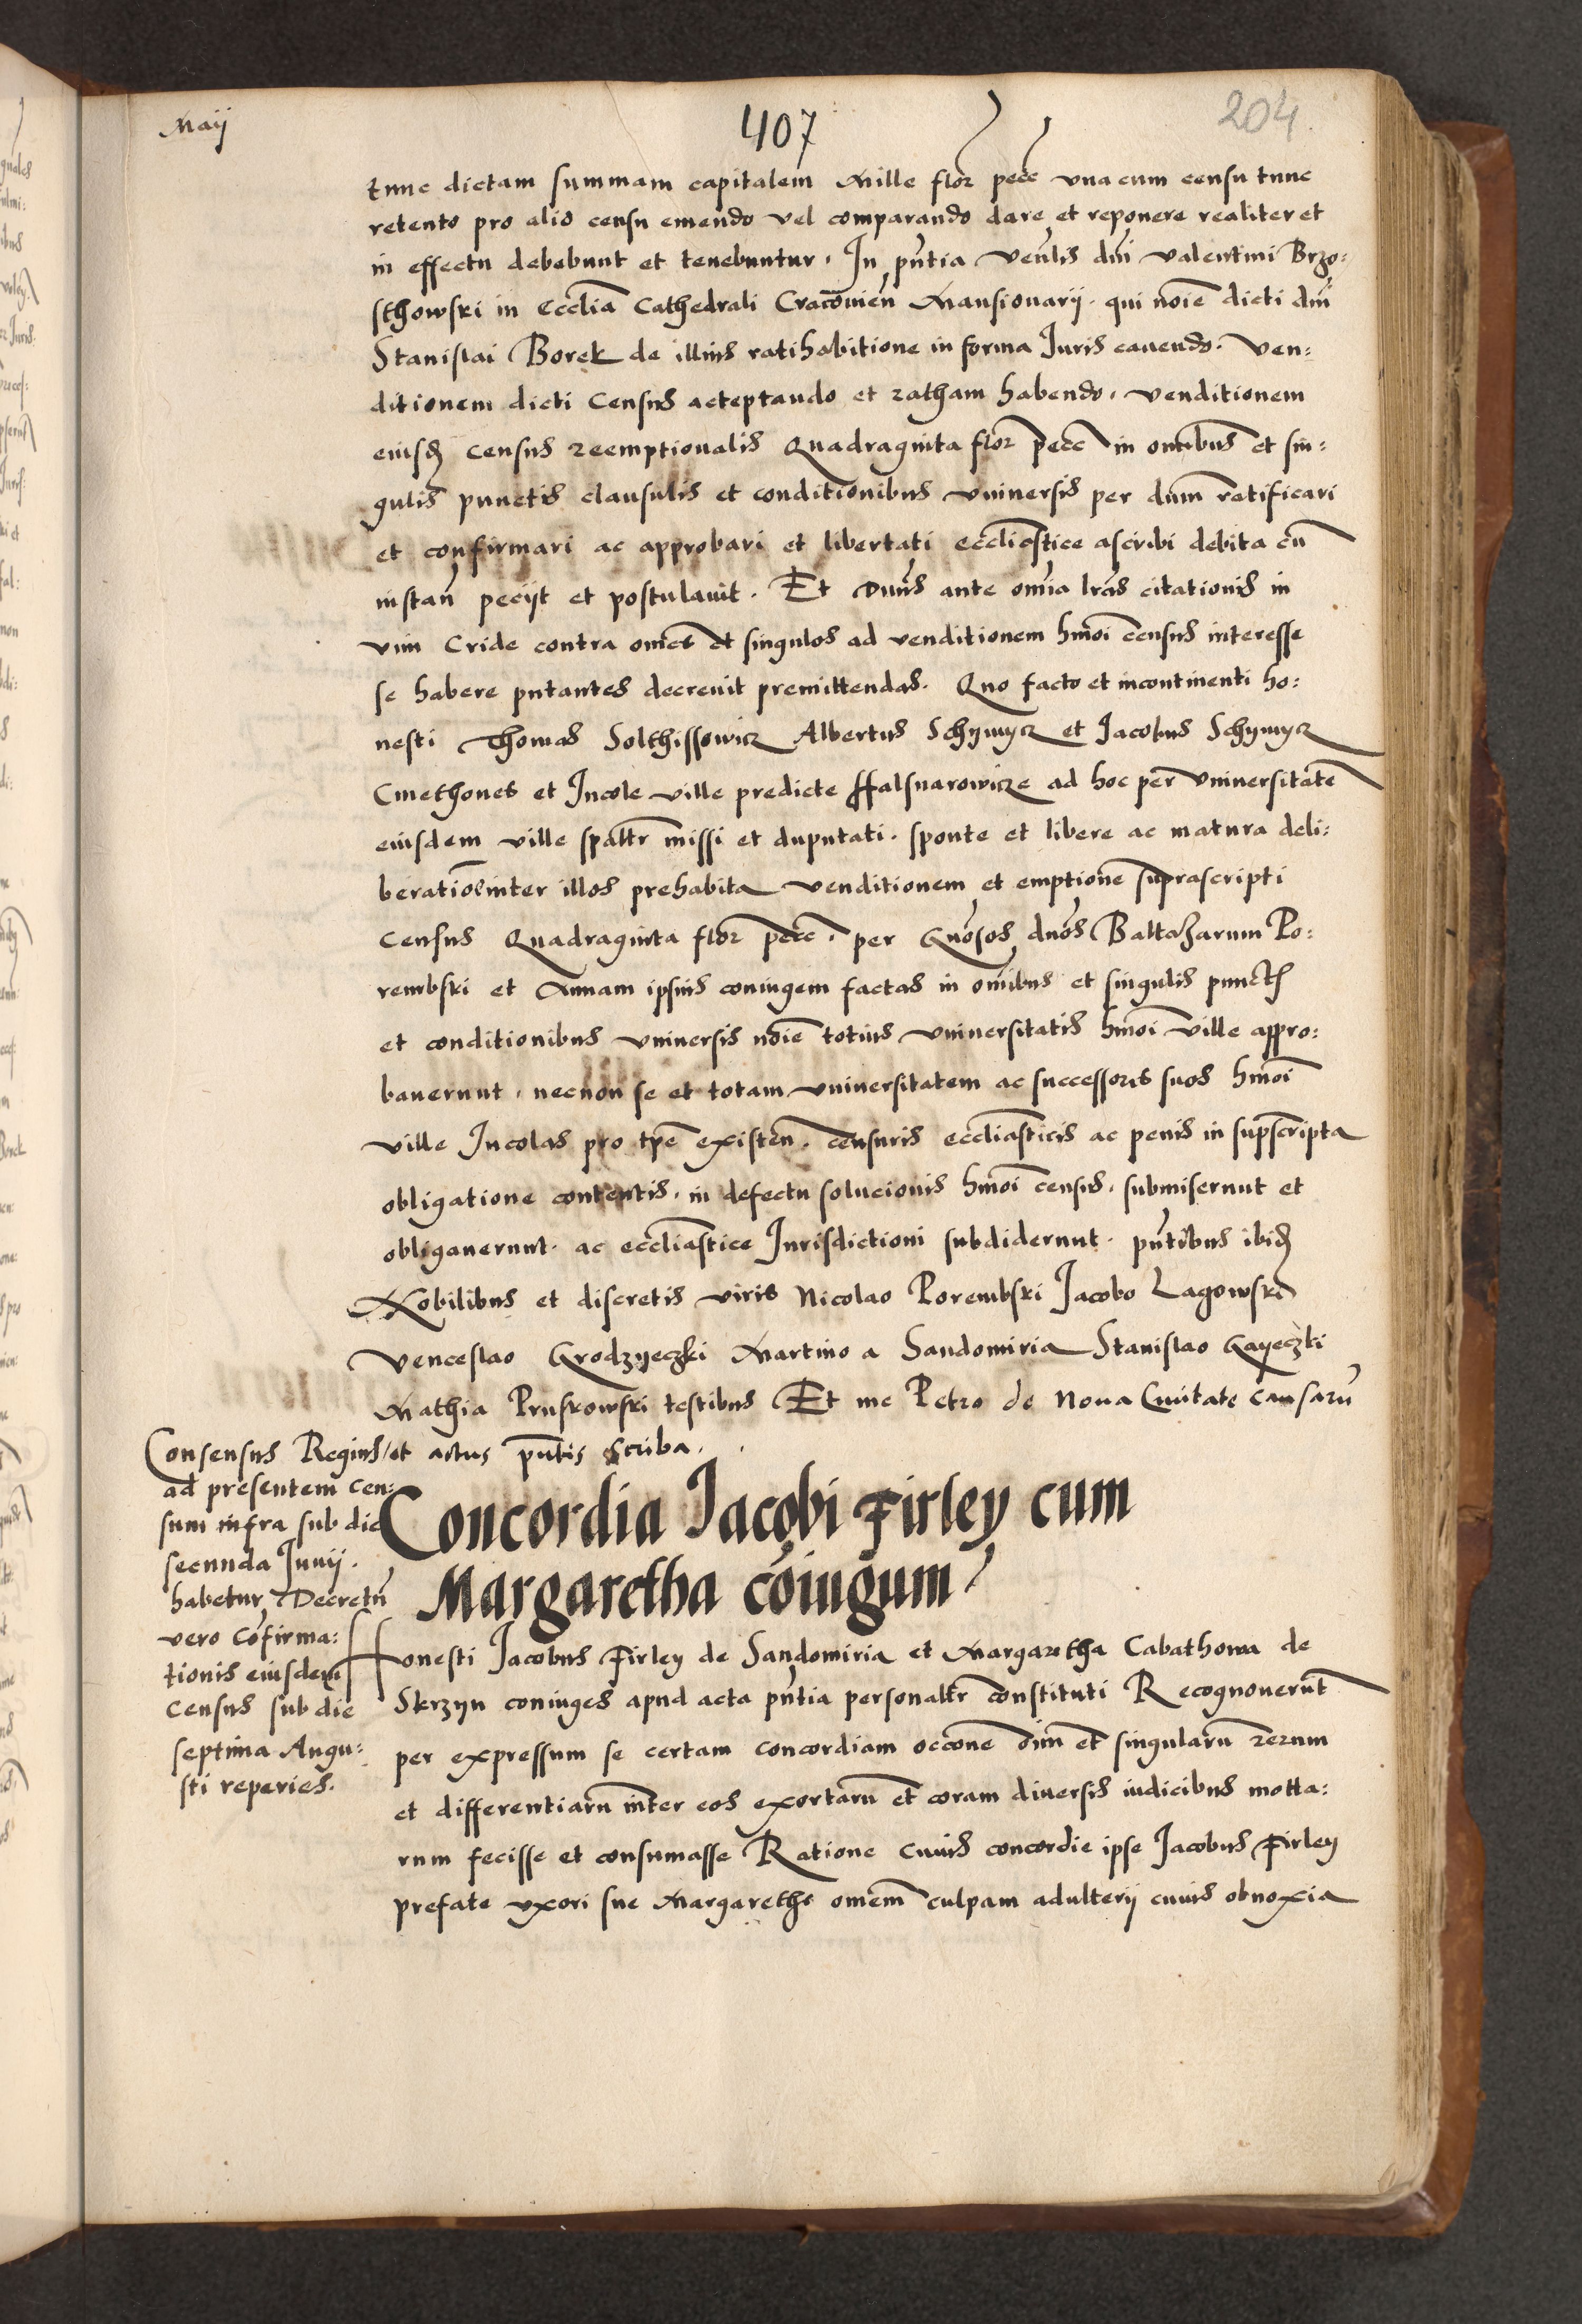 Maij
407
204
tunc dictam summam capitalem Mille flor pecc vna cum censu tunc
retento pro alio censu emendo vel comparando dare et reponere realiter et
in effectu debebunt et tenebuntur. In pñtia Veñlis dñi Valentini Brzo:
sthowski in Ecclĩa Cathedrali Cracovieñ Mansionarij. qui nõie dicti dñi
Stanislai Borek de illius ratihabitione in forma Juris cauendo. Ven:
ditionem dicti Census acteptando et ratham habendo. Venditionem
eiusd Census reemptionalis Quadraginta flor pecc in omibus et sin:
gulis punctis clausulis et conditionibus vniuersis per dñum ratificari
et confirmari ac approbari et libertati eccliastice ascribi debita cũ
instañ peciit et postulauit. Et Dñus ante omĩa lras citationis in
vim Cride contra omẽs et singulos ad venditionem hmõi census interesse
se habere putantes decreuit premittendas. Quo facto et incontinenti ho:
nesti Thomas Solthissowicz Albertus Schymycz et Jacobus Schymycz
Cmethones et Incole ville predicte Ffalsnarowicze ad hoc per Vniuersitatẽ
eiusdem ville spaltr missi et duputati. sponte et libere ac matura deli:
beratiõe inter illos prehabita venditionem et emptionẽ suprascripti
Census Quadraginta flor pecc. per Gñosos dños Baltazarum Po:
rembski et Annam ipsius coniugem factas in omibus et singulis punctis
et conditionibus vniuersis nõie totius vniuersitatis hmõi ville appro:
bauerunt. necnon se et totam vniuersitatem ac successores suos hmõi
ville Incolas pro tpẽ existeñ. censuris eccliasticis ac penis in supscripta
obligatione contentis. in defectu solucionis hmõi census. submiserunt et
obligauerunt. ac eccliastice Jurisdictioni subdiderunt. pñtibus ibid
Nobilibus et discretis viris Nicolao Porembski Jacobo Lagowski
Venceslao Grodzyeczki Martino a Sandomiria Stanislao Gayeczki
Mathia Pruskowski testibus Et me Petro de Noua Ciuitate Causarũ
et actus pñtis scriba.
Consensus Regius
ad presentem cen:
sum infra sub die
secunda Junij.
habetur Decretũ
vero cõfirma:
tionis eiusdem
Census sub die
septima Augu:
sti reperies.
Concordia Jacobi Firley cum
Margaretha cõiugum
Honesti Jacobus Firley de Sandomiria et Margaretha Cabathowa de
Skrzyn coniuges apud acta pñtia personaltr constituti Recognouerũt
per expressum se certam concordiam occõne oĩm et singularũ rerum
et differentiarũ inter eos exortarũ et coram diuersis iudicibus motta:
rum fecisse et consumasse Ratione cuius concordie ipse Jacobus Firley
prefate vxori sue Margarethe omẽm culpam adulterij cuius obnoxia